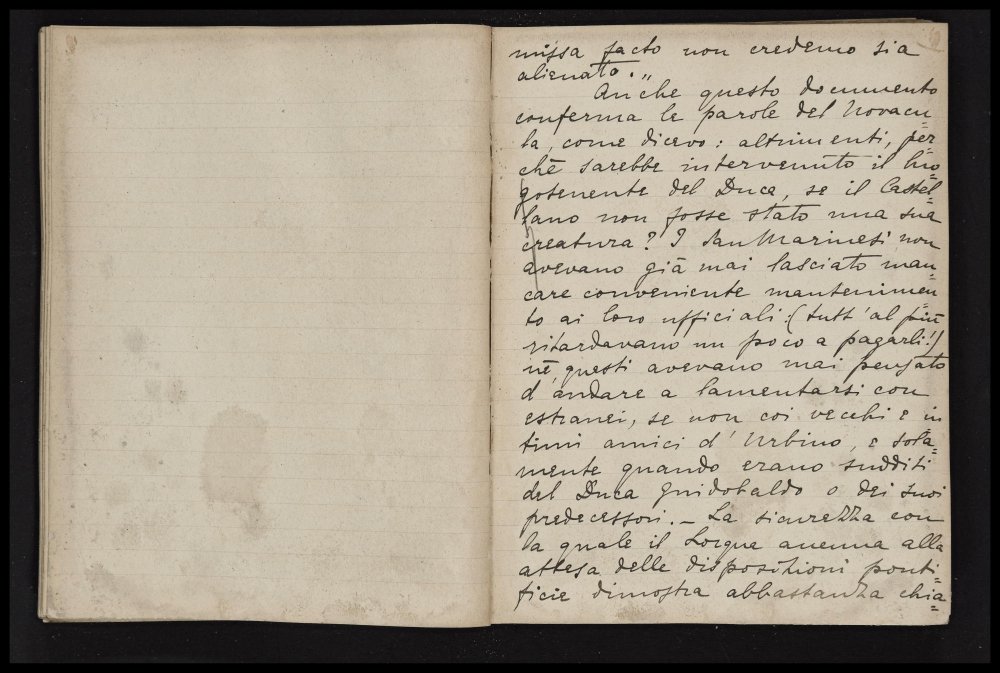 missa facto non credemo sia
alienato."
Anche questo documento
conferma le parole del Novacu=
la, come dicevo: altrimenti, per=
chè sarebbe intervenuto il luo=
gotenente del Duca, se il Castel=
lano non fosse stato una sua
creatura? I San Marinesi non
avevano già mai lasciato man=
care conveniente mantenimen=
to ai loro ufficiali: (tutt'al più
ritardavano un poco a pagarli!)
nè questi avevano mai pensato
d'andare a lamentarsi con
estranei, se non coi vecchi e in
timi amici d'Urbino, e sola=
mente quando erano sudditi
del Duca Guidobaldo o dei suoi
predecessori. – La sicurezza con
la quale il Lorque anenna alla
attesa delle disposizioni ponti=
ficie dimostra abbastanza chia=